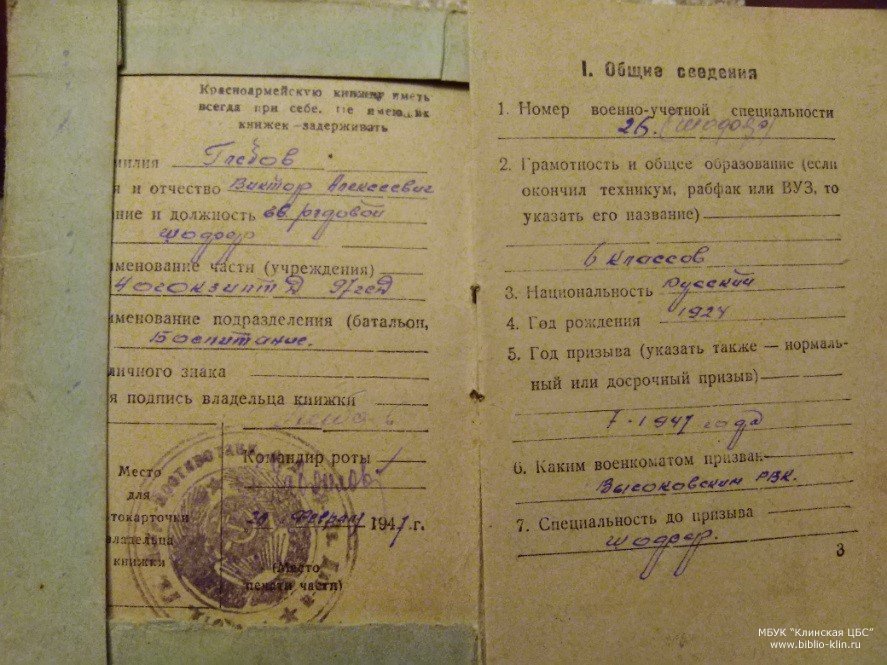 Красноармейскую книжку иметь
всегда при себе. Не имеющих
книжек — задерживать
милия Глебов
я и отчество Виктор Алексеевич
ние и должность рядовой
шофер
именование части (учреждения)
именование подразделения (батальон,
личного знака
я подпись владельца книжки
Командир роты
Место
для
токарточки
владельца
книжки
февраля 1947 г.
(Место
печати части)
I. Общие сведения
1. Номер военно-учетной специальности
26 (шофер)
2. Грамотность и общее образование (если
окончил техникум, рабфак или ВУЗ, то
указать его название)
6 классов
3. Национальность Русский
4. Год рождения 1924
5. Год призыва (указать также — нормаль-
ный или досрочный призыв)
года
6. Каким военкоматом призван
Высоковским РВК.
7. Специальность до призыва
шофер.
3
МБУК "Клинская ЦБС"
www.biblio-klin.ru